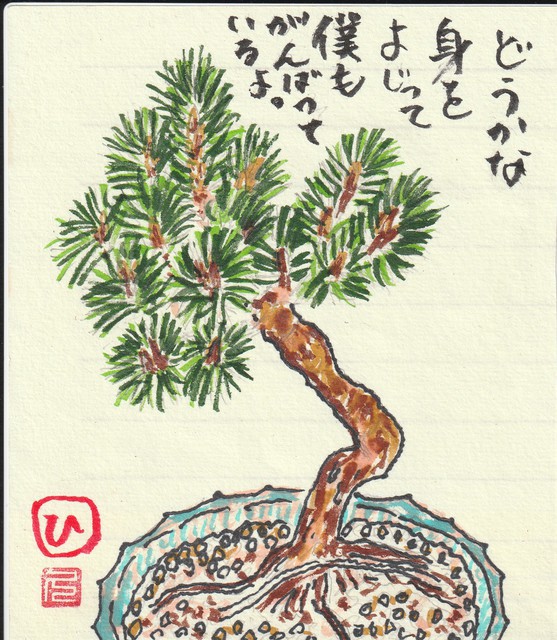 どうかな
身を
よじって
僕も
がんばって
いるよ。
ひ